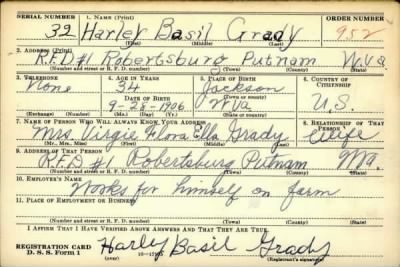 SERIAL NUMBER 1. NAME (Print) ORDER NUMBER
32 Harley Basil Grady 952
(First) (Middle) (Last)
2. ADDRESS (Print)
R.F.D #1 Robertsburg Putnam W.Va
(Number and street or R. F. D. number) (Town) (County) (State)
3. TELEPHONE 4. AGE IN YEARS 5. PLACE OF BIRTH 6. COUNTRY OF CITIZENSHIP
None 34 Jackson
DATE OF BIRTH (Town or county)
9-28-1906 W Va U.S.
(Exchange) (Number) (Mo.) (Day) (Yr.) (State or country)
7. NAME OF PERSON WHO WILL ALWAYS KNOW YOUR ADDRESS 8. RELATIONSHIP OF THAT PERSON
Mrs. Virgie Flora Ella Grady Wife
(Mr., Mrs., Miss) (First) (Middle) (Last)
9. ADDRESS OF THAT PERSON
R.F.D #1 Robertsburg Putnam
(Number and street or R. F. D. number) (Town) (County) (State)
10. EMPLOYER'S NAME
Works for himself on farm
11. PLACE OF EMPLOYMENT OR BUSINESS
(Number and street or R. F. D. number) (Town) (County) (State)
I AFFIRM THAT I HAVE VERIFIED ABOVE ANSWERS AND THAT THEY ARE TRUE.
REGISTRATION CARD Harley Basil Grady
D. S. S. Form 1 (Registrant's signature)